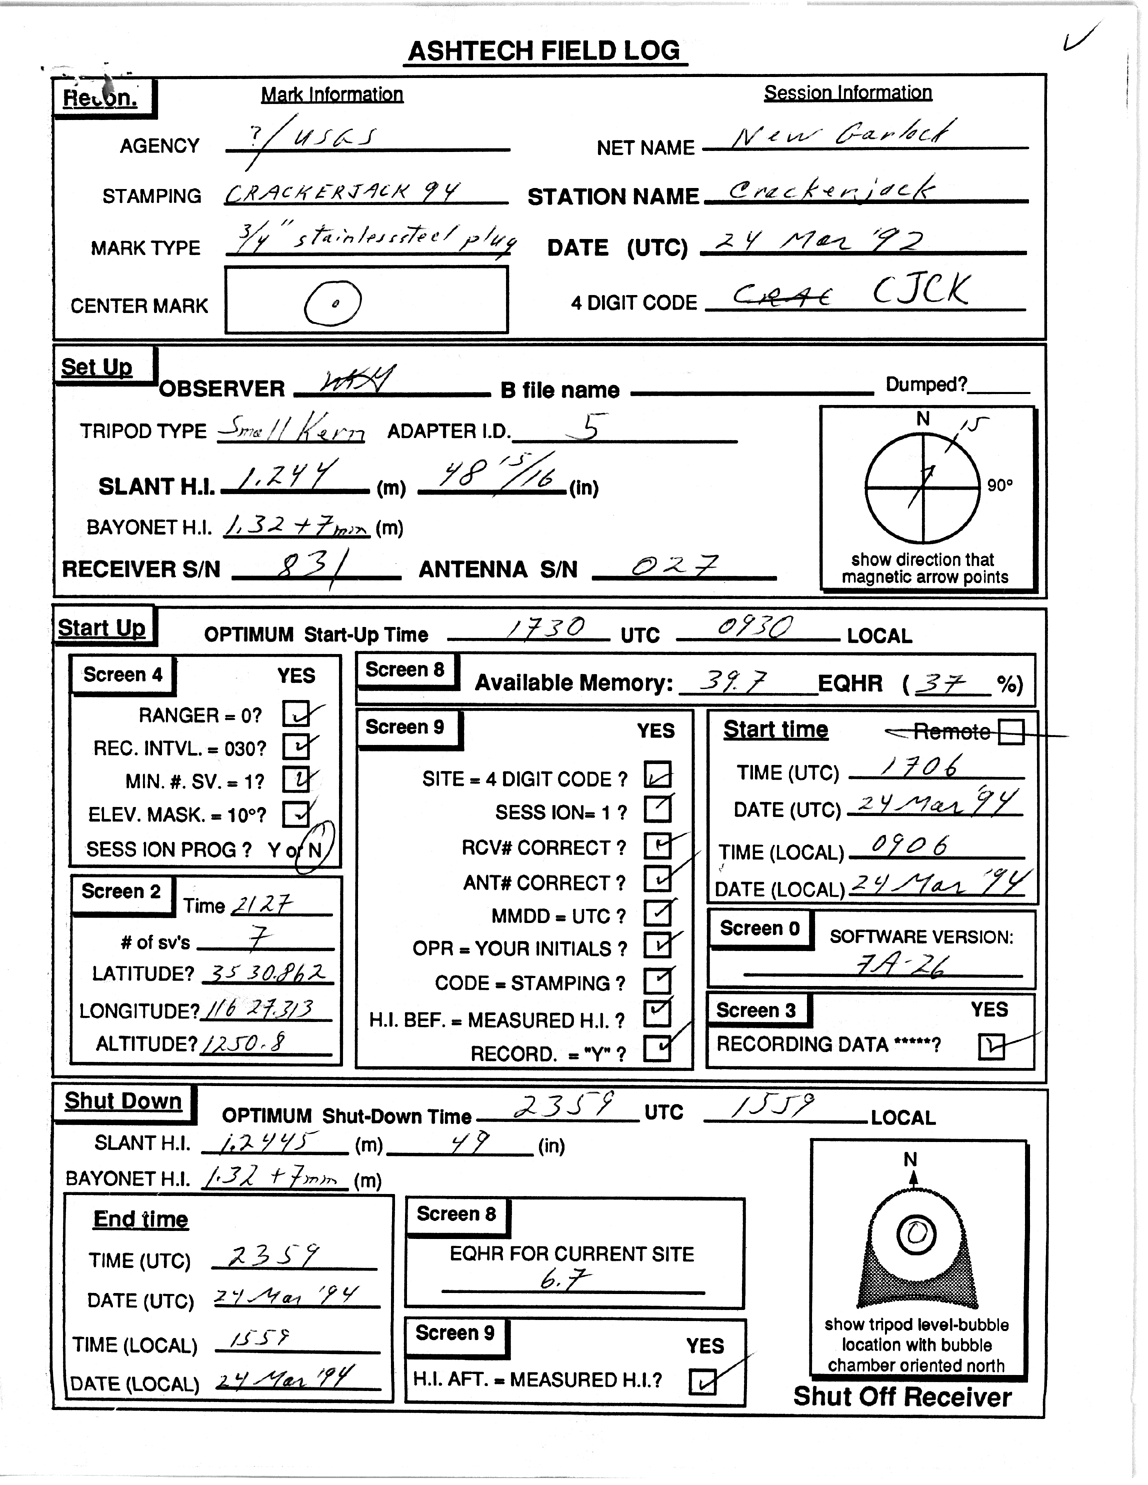 ASHTECH FIELD LOG
Recon. Mark Information Session Information
AGENCY ?/USGS NET NAME New Garlock
STAMPING CRACKERJACK 94 STATION NAME Crackerjack
MARK TYPE 3/4" stainlesssteel plug DATE (UTC) 24 Mar '92
CENTER MARK 4 DIGIT CODE CRAC CJCK
Set Up
OBSERVER B file name Dumped?
TRIPOD TYPE Small Kern ADAPTER I.D. 5
N 15
SLANT H.I. 1.244 (m) 48 15/16 (in) 90°
BAYONET H.I. 1.32 + 7mm (m)
show direction that
magnetic arrow points
RECEIVER S/N 831 ANTENNA S/N 027
Start Up OPTIMUM Start-Up Time 1730 UTC 0930 LOCAL
Screen 4 YES
RANGER = 0?
REC. INTVL. = 030?
MIN. #. SV. = 1?
ELEV. MASK. = 10°?
SESS ION PROG ? Y or N
Screen 2 Time 2127
# of sv's 7
LATITUDE? 35 30.862
LONGITUDE? 116 27.313
ALTITUDE? 1250.8
Screen 8 Available Memory: 39.7 EQHR ( 37 %)
Screen 9 YES
SITE = 4 DIGIT CODE ?
SESS ION= 1 ?
RCV# CORRECT ?
ANT# CORRECT ?
MMDD = UTC ?
OPR = YOUR INITIALS ?
CODE = STAMPING ?
H.I. BEF. = MEASURED H.I. ?
RECORD. = "Y" ?
Start time Remote
TIME (UTC) 1706
DATE (UTC) 24 Mar '94
TIME (LOCAL) 0906
DATE (LOCAL) 24 Mar '94
Screen 0 SOFTWARE VERSION:
7A-26
Screen 3 YES
RECORDING DATA *****?
Shut Down OPTIMUM Shut-Down Time 2359 UTC 1559 LOCAL
SLANT H.I. 1.2445 (m) 49 (in)
BAYONET H.I. 1.32 + 7mm (m)
End time
TIME (UTC) 2359
DATE (UTC) 24 Mar '94
TIME (LOCAL) 1559
DATE (LOCAL) 24 Mar '94
Screen 8
EQHR FOR CURRENT SITE
6.7
Screen 9 YES
H.I. AFT. = MEASURED H.I.?
N
show tripod level-bubble
location with bubble
chamber oriented north
Shut Off Receiver